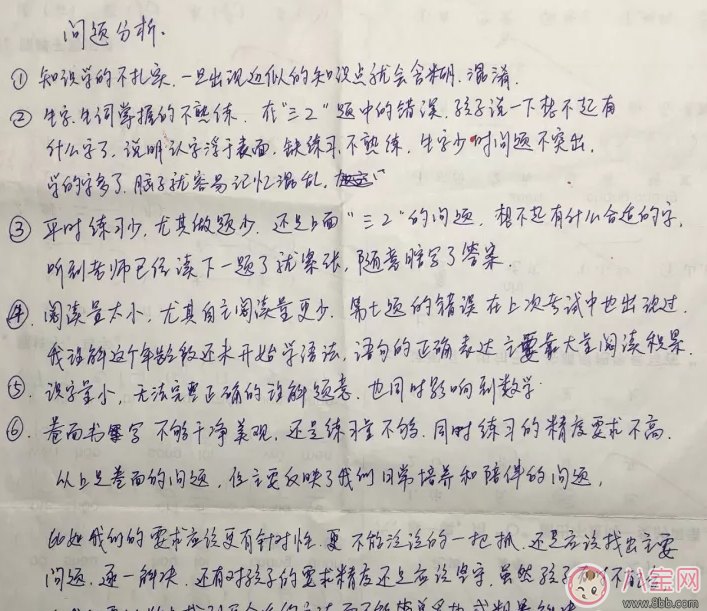 问题分析.
① 知识学的不扎实.一旦出现近似的知识点就会含糊.混淆.
② 生字.生词掌握的不熟练.在"三2"题中的错误.孩子说一下想不起有
什么字了,说明认字浮于表面,缺练习,不熟练,生字少时问题不突出,
学的字多了.脑子就容易记忆混乱,
③ 平时练习少,尤其做题少.还是上面"三2"的问题.想不起有什么合适的字,
听到老师已经读下一题了就紧张,随意瞎写了答案.
④.阅读量太小,尤其自主阅读量更少.第七题的错误在上次考试中也出现过.
我理解这个年龄段还未开始学语法,语句的正确表达主要靠大量阅读积累.
⑤.识字量小,无法完整正确的理解题意.也同时影响到数学.
⑥.卷面书写不够干净美观.还是练习量不够.同时练习的精度要求不高.
以上是卷面的问题,但主要反映了我们日常培养和陪伴的问题,
比如我们的要求应该更有针对性.更不能泛泛的一把抓.还是应该找出主要
问题.逐一解决.还有对孩子的要求精度还是应该坚守.虽然孩子
八宝网
www.8bb.com